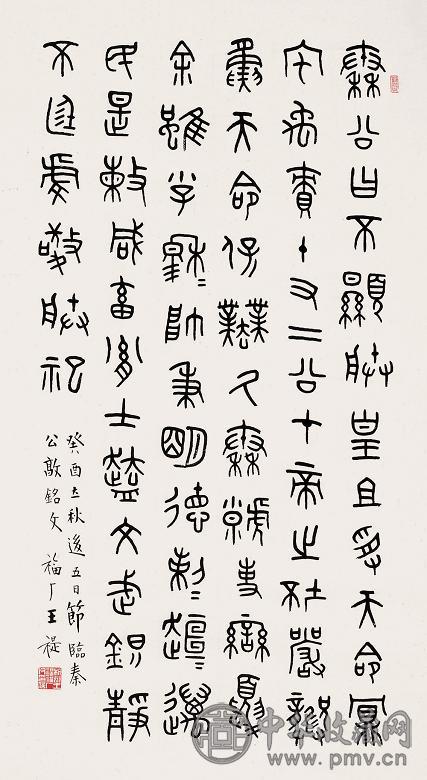 秦公曰不顯朕皇且受天命鼏
宅禹責十又二公才帝之坏嚴龏
夤天命保業氒秦虩事蠻夏
余雖小子穆=帥秉明德剌=趄=邁
民是敕咸畜胤士藎=文武鎮靜
不廷虔敬朕祀
癸酉立秋後五日節臨秦
公敦銘文 福厂王禔
收藏网
www.pmv.cn